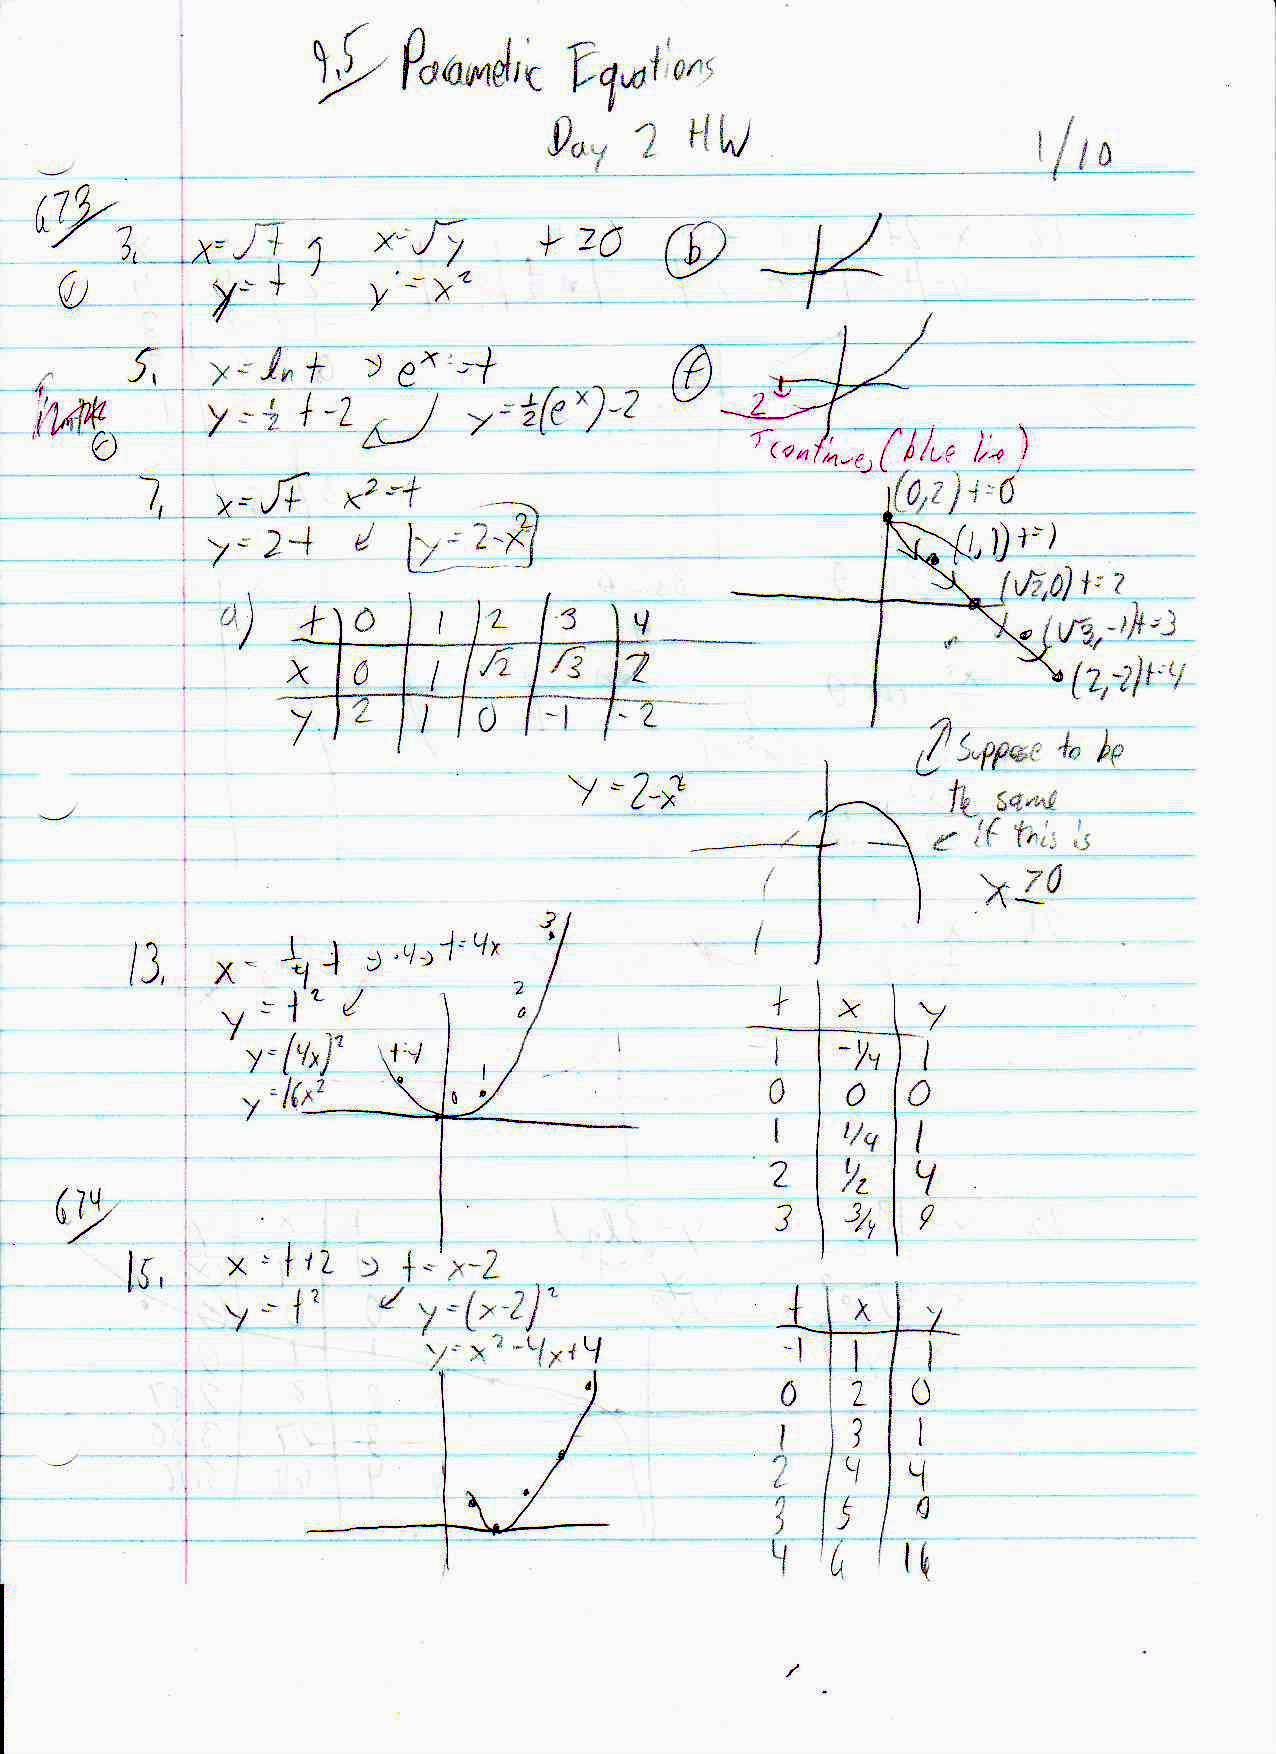 9.5 Parametric Equations
Day 2 HW
1/10
673
3. x=√t, x=√y t≥0 (b)
y=t y=x²
5. x=ln t → e^x=t (f)
y=½t-2 y=½(e^x)-2
2
↑continues (blue line)
7. x=√t x²=t
y=2-t y=2-x²
(0,2) t=0
(1,1) t=1
(√2,0) t=2
(√3,-1) t=3
(2,-2) t=4
a) t 0 1 2 3 4
x 0 1 √2 √3 2
y 2 1 0 -1 -2
y=2-x²
Suppose to be
the same
← if this is
x≥0
13. x=¼t → ·4 → t=4x
y=t²
y=(4x)²
y=16x²
t=-1
0
1
2
3
t x y
-1 -1/4 1
0 0 0
1 1/4 1
2 1/2 4
3 3/4 9
674
15. x=t+2 → t=x-2
y=t² y=(x-2)²
y=x²-4x+4
t x y
-1 1 1
0 2 0
1 3 1
2 4 4
3 5 9
4 6 16